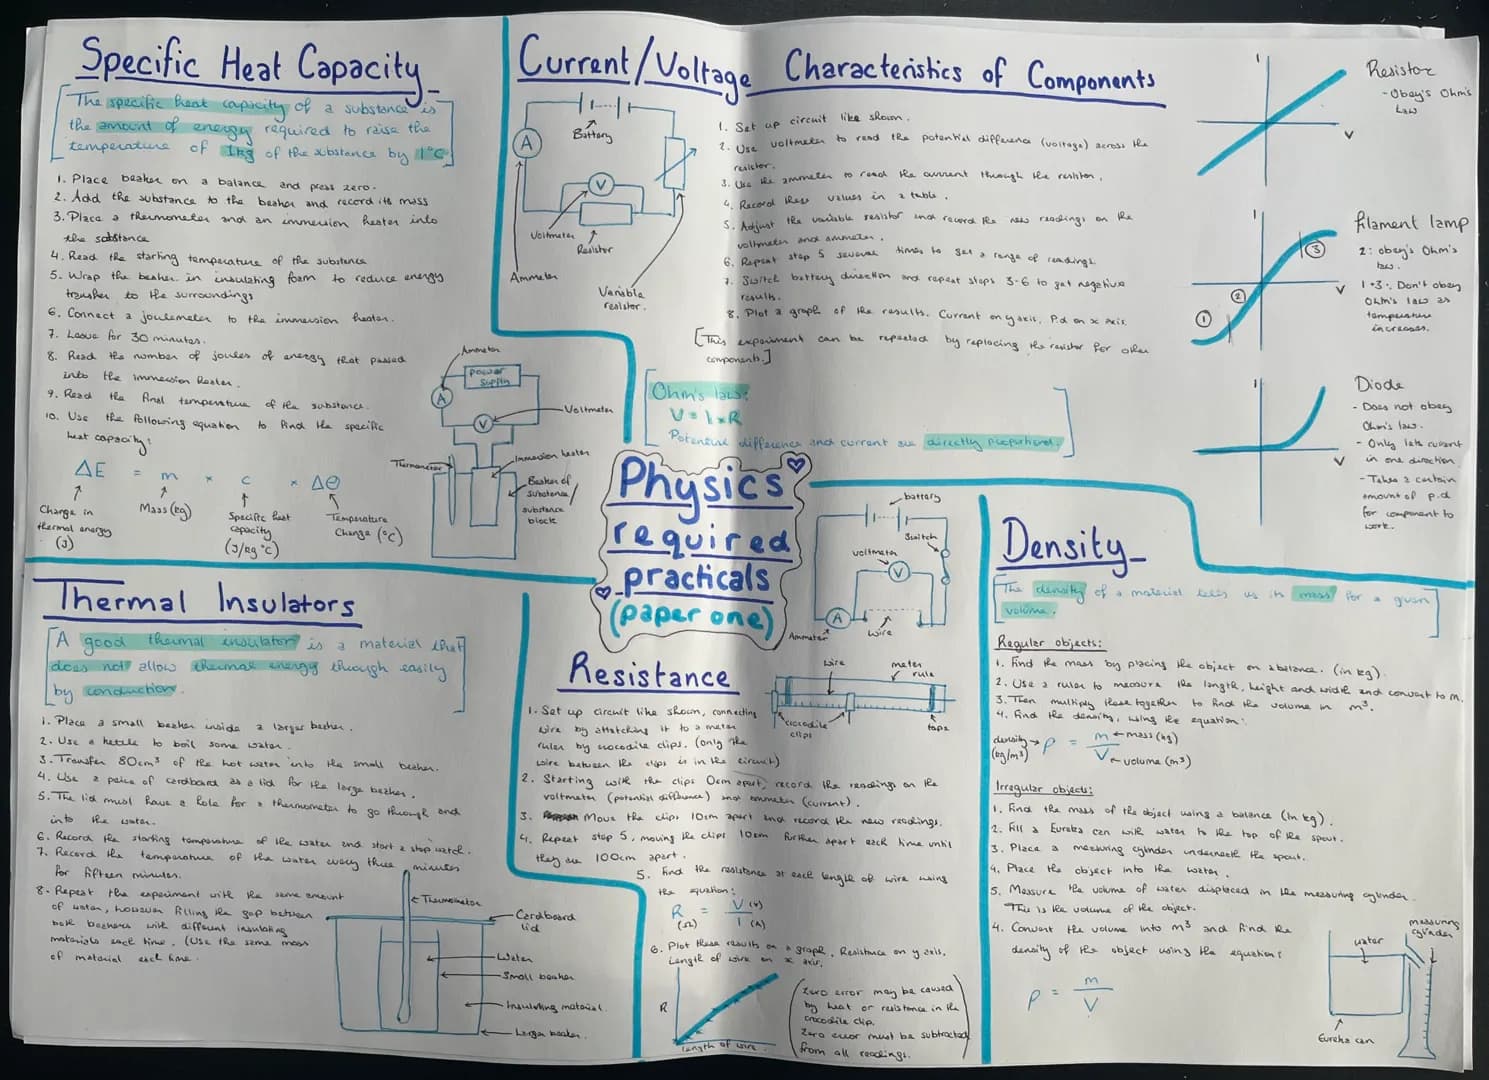 Specific Heat Capacity
[The specific heat capacity of a substance is
the amount of energy required to raise the
temperature of 1kg of the substance by 1°C]
1. Place beaker on a balance and press zero.
2. Add the substance to the beaker and record its mass
3. Place a thermometer and an immersion heater into
the substance
4. Read the starting temperature of the substance
5. Wrap the beaker in insulating foam to reduce energy
transfer to the surroundings
6. Connect a joulemeter to the immersion heater.
7. Leave for 30 minutes.
8. Read the number of joules of energy that passed
into the immersion heater.
9. Read the final temperature of the substance.
10. Use the following equation to find the specific
heat capacity:
ΔE = m × c × Δθ
Change in
thermal energy
(J)
Mass (kg)
Specific heat
capacity
(J/kg °C)
Temperature
Change (°C)
Ammeter
power
supply
A
V
Voltmeter
Thermometer
Immersion heater
Beaker of
substance/
substance
block
Current/Voltage Characteristics of Components
Battery
A
V
Voltmeter
Resistor
Ammeter
Variable
resistor.
1. Set up circuit like shown.
2. Use voltmeter to read the potential difference (voltage) across the
resistor.
3. Use the ammeter to read the current through the resistor.
4. Record these values in a table.
5. Adjust the variable resistor and record the new readings on the
voltmeter and ammeter.
6. Repeat step 5 several times to get a range of readings.
7. Switch battery direction and repeat steps 3-6 to get negative
results.
8. Plot a graph of the results. Current on y axis, P.d on x axis.
[This experiment can be repeated by replacing the resistor for other
components.]
[Ohm's law:
V = I × R
Potential difference and current are directly proportional.]
I
V
Resistor
- Obey's Ohm's
Law
I
V
1
2
3
filament lamp
2: obey's Ohm's
law.
1+3: Don't obey
Ohm's law as
temperature
increases.
I
V
Diode
- Does not obey
Ohm's law.
- Only lets current
in one direction
- Takes a certain
amount of p.d
for component to
work.
Physics
required
practicals
(paper one)
Thermal Insulators
[A good thermal insulator is a material that
does not allow thermal energy through easily
by conduction.]
1. Place a small beaker inside a larger beaker.
2. Use a kettle to boil some water.
3. Transfer 80cm³ of the hot water into the small beaker.
4. Use a peice of cardboard as a lid for the large beaker.
5. The lid must have a hole for a thermometer to go through and
into the water.
6. Record the starting temperature of the water and start a stop watch.
7. Record the temperature of the water every three minutes
for fifteen minutes.
8. Repeat the experiment with the same amount
of water, however filling the gap between
both beakers with different insulating
materials each time. (Use the same mass
of material each time.
Thermometer
Cardboard
lid
Water
Small beaker
Insulating material.
Larger beaker.
Resistance
battery
Switch
voltmeter
V
A
Ammeter
wire
wire
meter
rule
crocodile
clips
tape
1. Set up circuit like shown, connecting
wire by attatching it to a meter
ruler by crocodile clips. (only the
wire between the clips is in the circuit)
2. Starting with the clips 0cm apart, record the readings on the
voltmeter (potential difference) and ammeter (current).
3. Move the clips 10cm apart and record the new readings.
4. Repeat step 5, moving the clips 10cm further apart each time until
they are 100cm apart.
5. Find the resistance at each length of wire using
the equation:
R = V (V)
(Ω) I (A)
6. Plot these results on a graph. Resistance on y axis,
Length of wire on x axis.
R
length of wire
(Zero error may be caused
by heat or resistance in the
crocodile clip.
Zero error must be subtracted
from all readings.)
Density
[The density of a material tells us its mass for a given
volume.]
Regular objects:
1. Find the mass by placing the object on a balance. (in kg).
2. Use a ruler to measure the length, height and width and convert to m.
3. Then multiply these together to find the volume in m³.
4. Find the density, using the equation:
density → ρ = m ← mass (kg)
(kg/m³) V ← volume (m³)
Irregular objects:
1. Find the mass of the object using a balance (in kg).
2. Fill a Eureka can with water to the top of the spout.
3. Place a measuring cylinder underneath the spout.
4. Place the object into the water.
5. Measure the volume of water displaced in the measuring cylinder.
This is the volume of the object.
4. Convert the volume into m³ and find the
density of the object using the equation:
ρ = m
V
water
measuring
cylinder
Eureka can